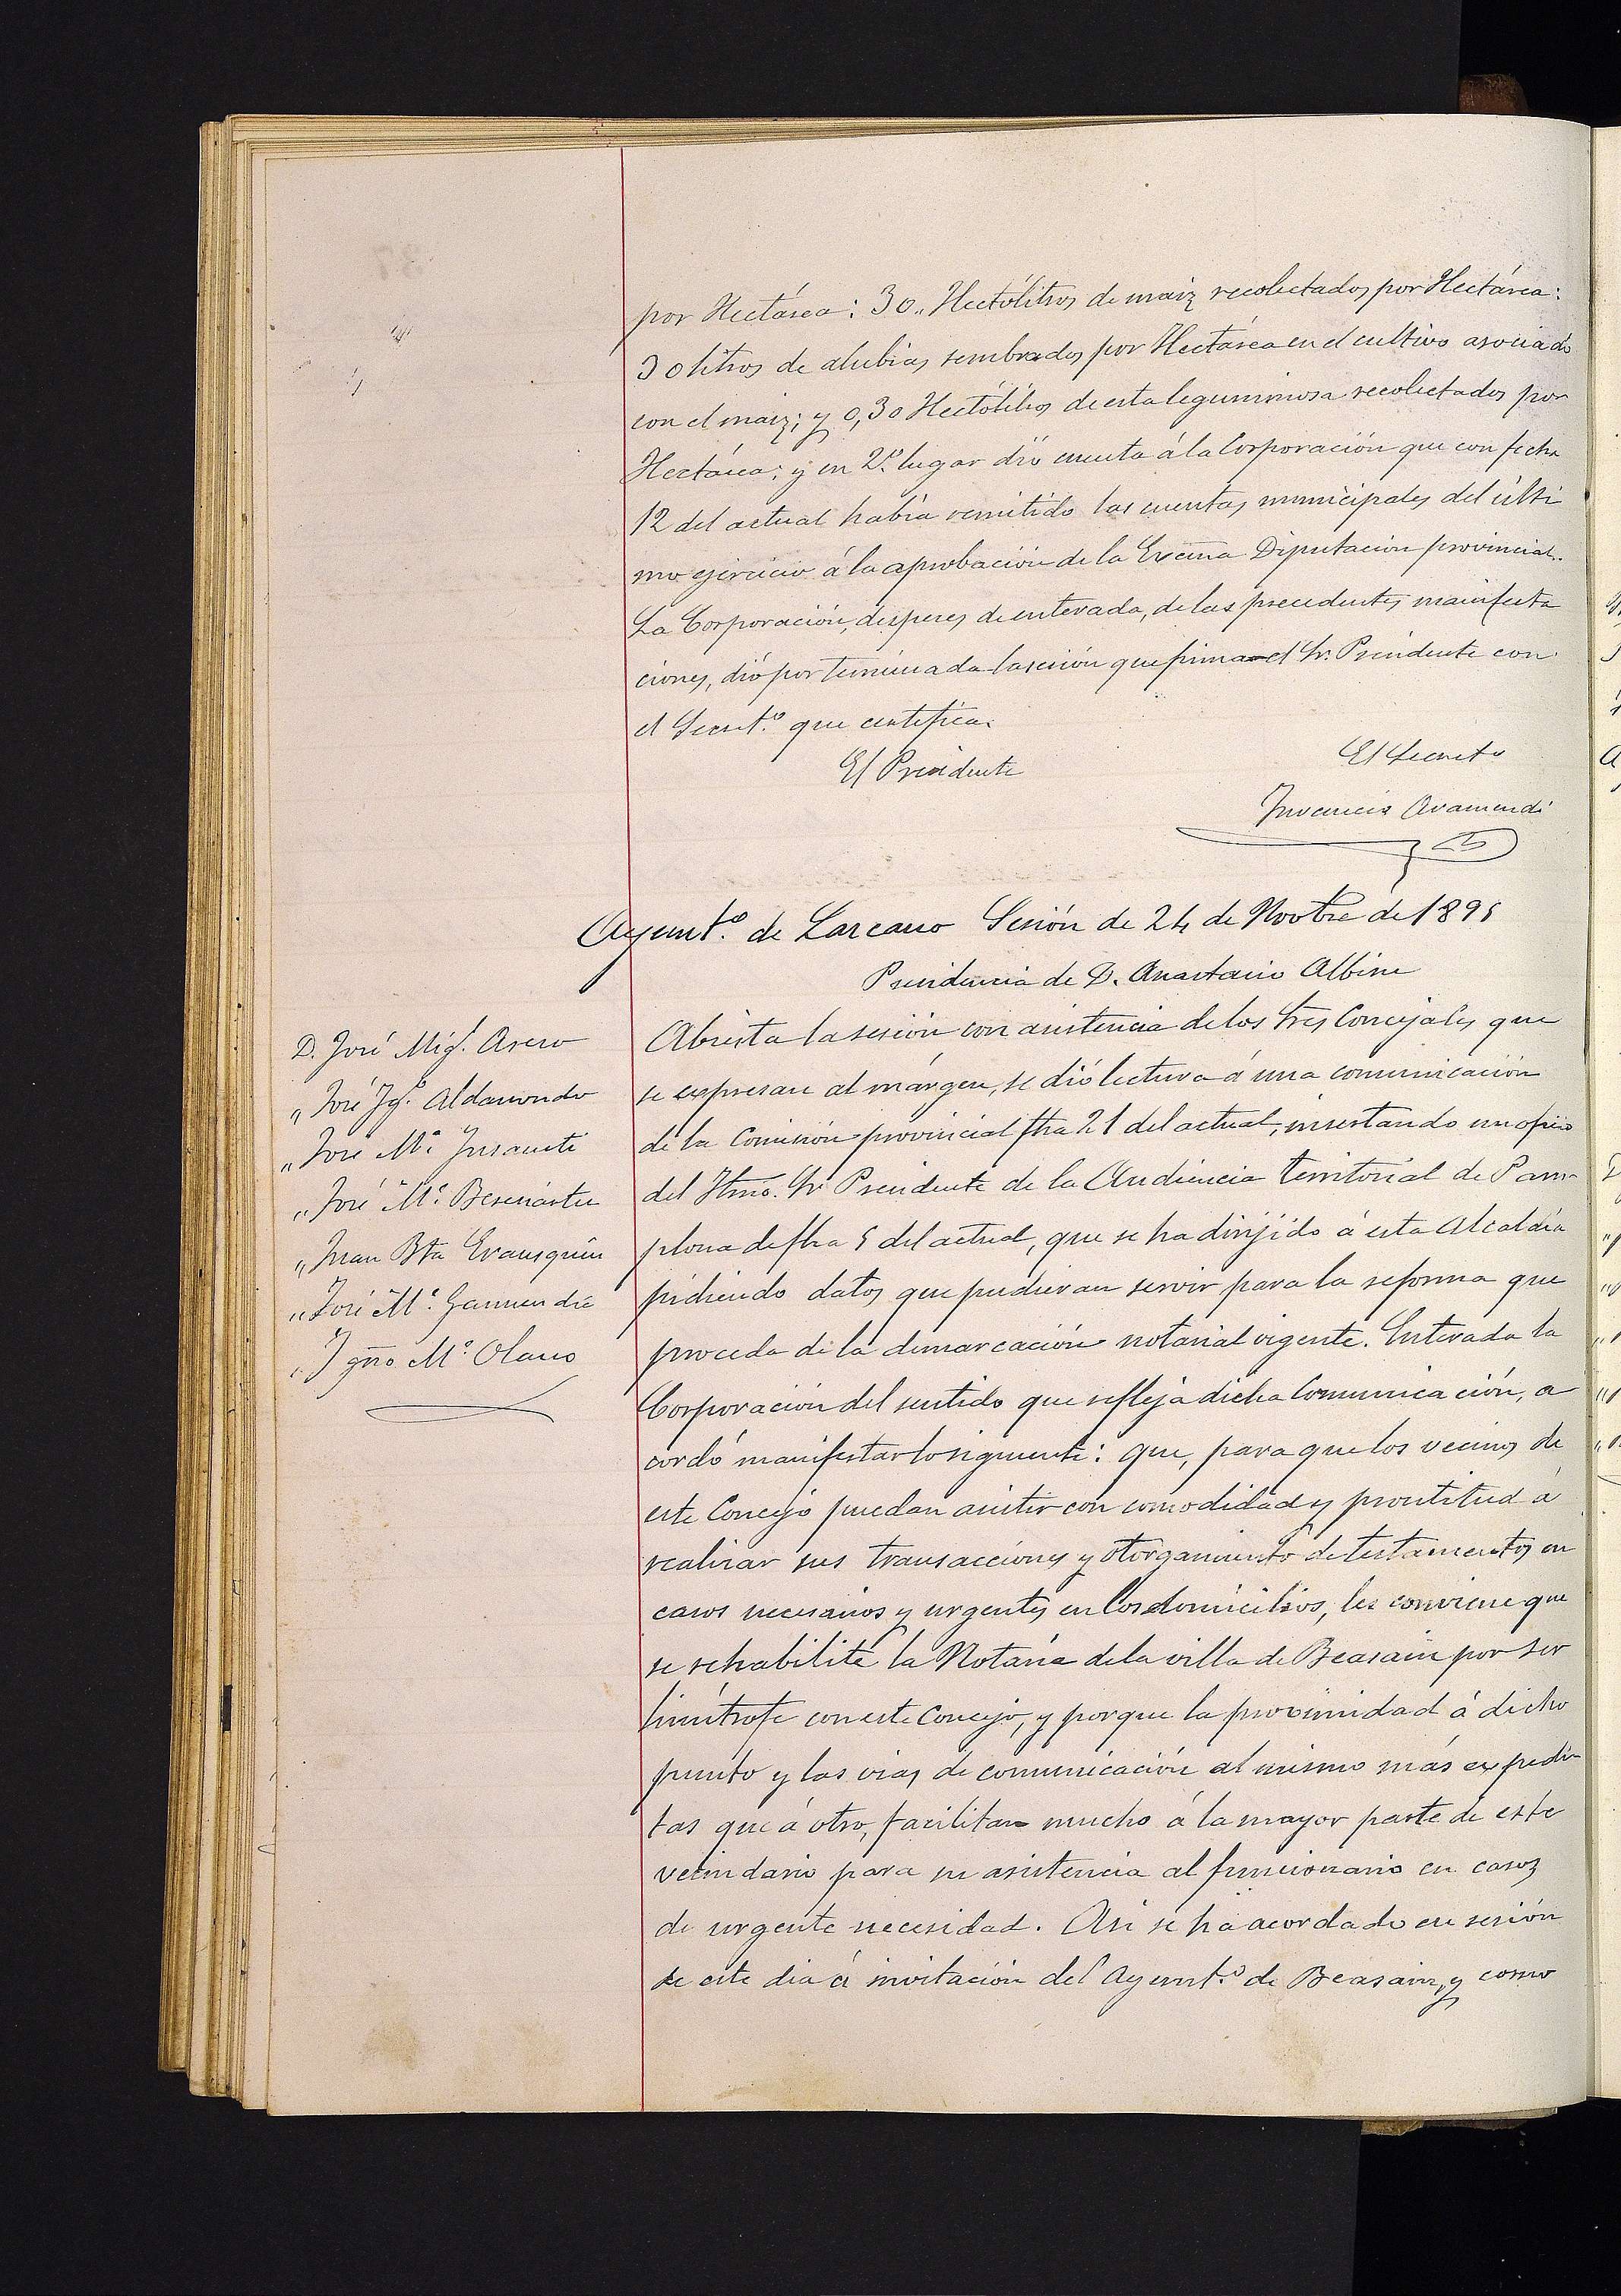 por Hectárea: 30,, Hectólitros de maiz recolectados por Hectárea:
30 litros de alubias sembrados por Hectárea en el cultivo asociado
con el maiz; y 0,30 Hectólitros de esta leguminosa recolectados por
Hectárea; y en 2º lugar dió cuenta á la Corporación que con fecha
12 del actual había remitido las cuentas municipales del últi
mo ejercicio á la aprobación de la Excma Diputación provincial.
La Corporación, despues de enterada, de las precedentes manifesta
ciones, dió por terminada la sesión que firma el Sr. Presidente con
el Secretº que certifica.
El Presidente
El Secreto
Inocencio Aramendi
Ayuntº de Lazcano Sesión de 24 de Novbre de 1895
Presidencia de D. Anastasio Albisu
D. José Migl. Asero
" José Igº Aldasoro
" José Mª Insausti
" José Mª Beresiartu
" Juan Bta Erausquin
" José Mª Garmendia
" Ignº Mª Olano
Abierta la sesión con asistencia de los Sres Concejales que
se expresan al márgen, se dió lectura á una comunicación
de la Comisión provincial fha 21 del actual, insertando un oficio
del Iltmo. Sr Presidente de la Audiencia territorial de Pam-
plona de fha 5 del actual, que se ha dirijido á esta Alcaldia
pidiendo datos que pudieran servir para la reforma que
proceda de la demarcación notarial vigente. Enterada la
Corporación del sentido que refleja dicha comunicación, a
cordó manifestar lo siguiente: que, para que los vecinos de
este Concejo puedan asistir con comodidad y prontitud á
realizar sus transacciones y otorgamiento de testamentos en
casos necesarios y urgentes en los domicilios, les conviene que
se rehabilite la Notaría de la villa de Beasain por ser
limítrofe con este Concejo, y porque la proximidad á dicho
punto y las vias de comunicación al mismo más expedi
tas que á otro, facilitan mucho á la mayor parte de este
vecindario para su asistencia al funcionario en casos
de urgente necesidad. Asi se ha acordado en sesión
de este dia á invitación del Ayuntº de Beasain, y como